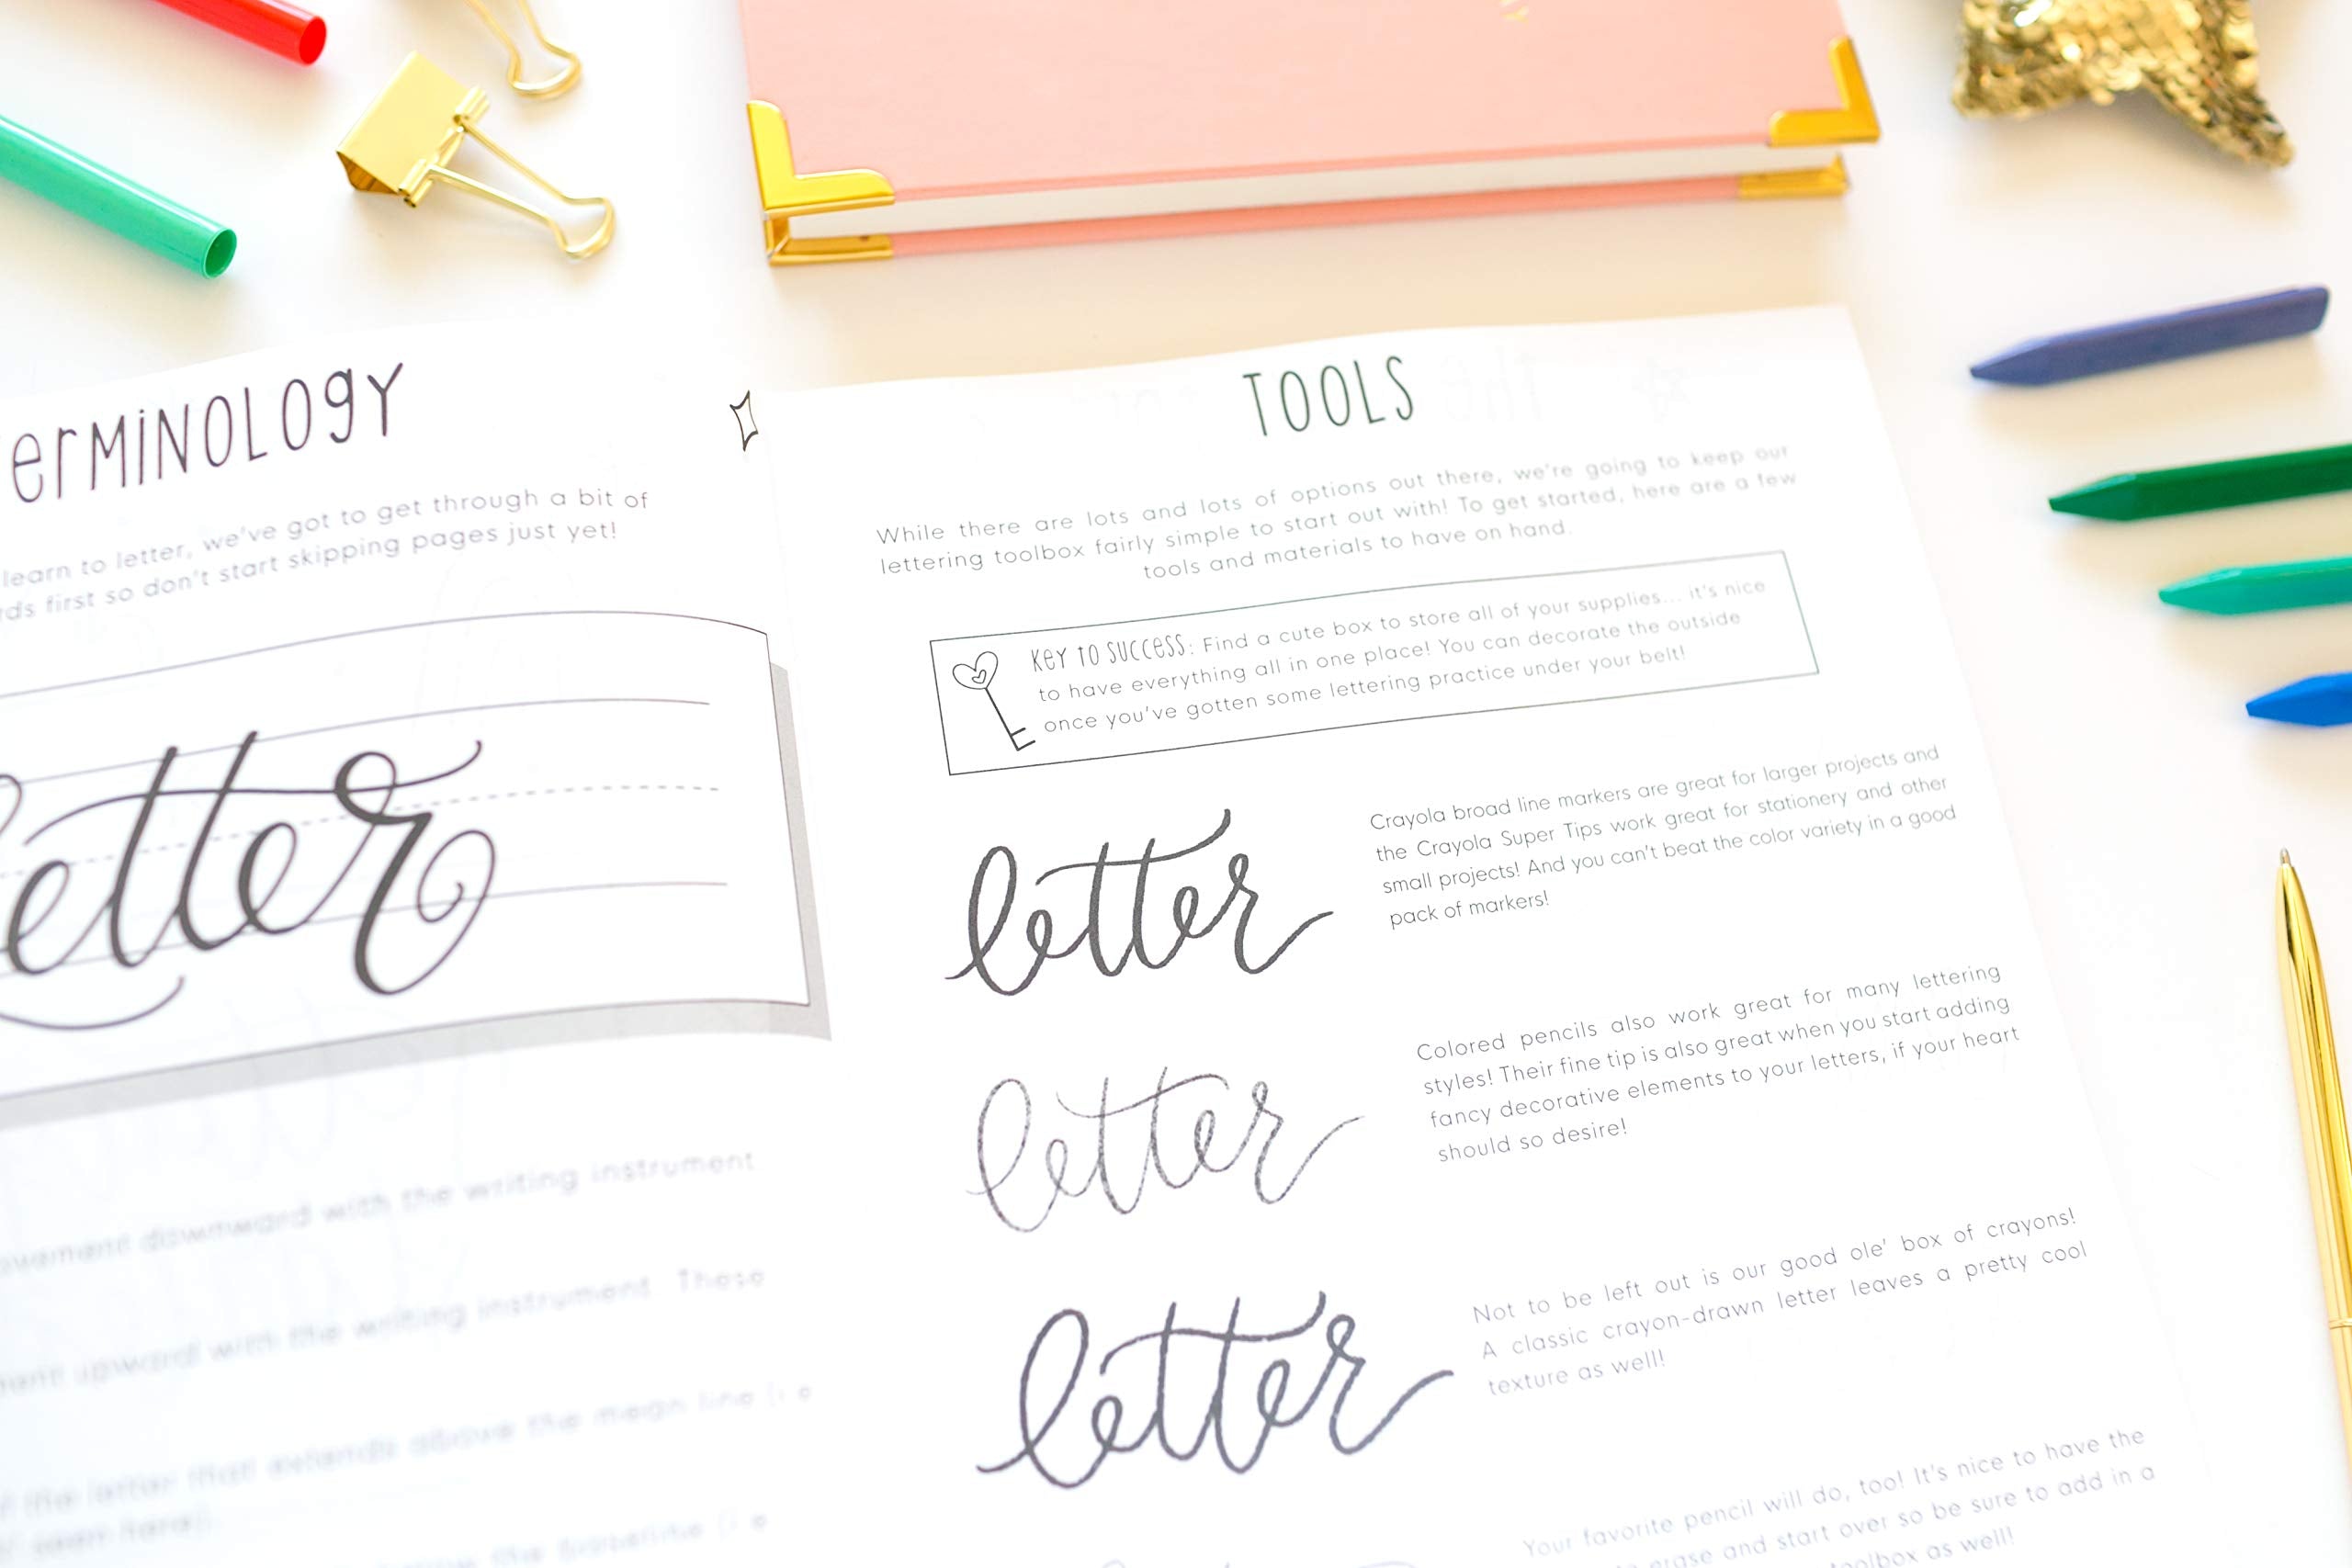 erminology
learn to letter, we've got to get through a bit of
first so don't start skipping pages just yet!
etter
downward with the writing instrument
upward with the writing instrument. These
the letter that extends above the mean line (i.e
seen here).
the baseline (i.e
TOOLS
While there are lots and lots of options out there, we're going to keep our
lettering toolbox fairly simple to start out with! To get started, here are a few
tools and materials to have on hand.
Key to success: Find a cute box to store all of your supplies... it's nice
to have everything all in one place! You can decorate the outside
once you've gotten some lettering practice under your belt!
letter
Crayola broad line markers are great for larger projects and
the Crayola Super Tips work great for stationery and other
small projects! And you can't beat the color variety in a good
pack of markers!
letter
Colored pencils also work great for many lettering
styles! Their fine tip is also great when you start adding
fancy decorative elements to your letters, if your heart
should so desire!
letter
Not to be left out is our good ole' box of crayons!
A classic crayon-drawn letter leaves a pretty cool
texture as well!
Your favorite pencil will do, too! It's nice to have the
erase and start over so be sure to add in a
toolbox as well!